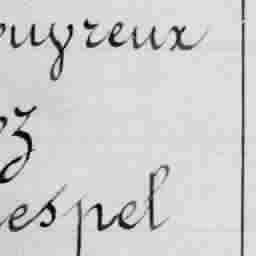 ouyreux
ez
espel